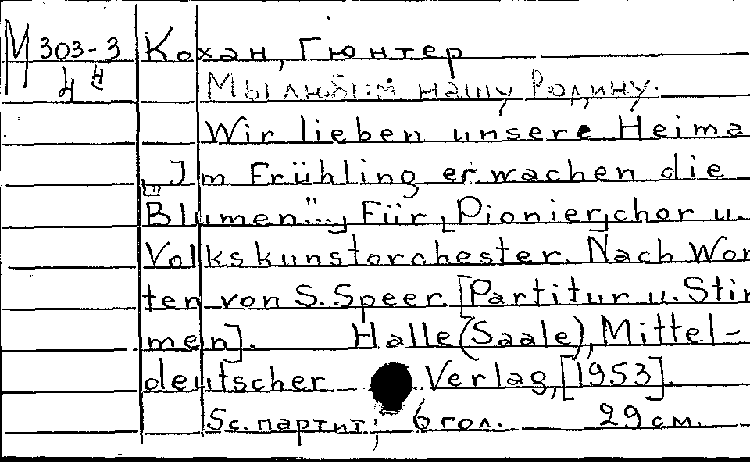 М 303-3 Кохан, Гюнтер
44 Мы любим нашу Родину.
Wir lieben unsere Heima
„Im Frühling erwachen die
Blumen"... Für Pionierchor u.
Volkskunstorchester. Nach Wor
ten von S. Speer. [Partitur u. Stim
men]. Halle (Saale), Mittel-
deutscher Verlag, [1953].
5с. партит; 6 гол. 29 см.